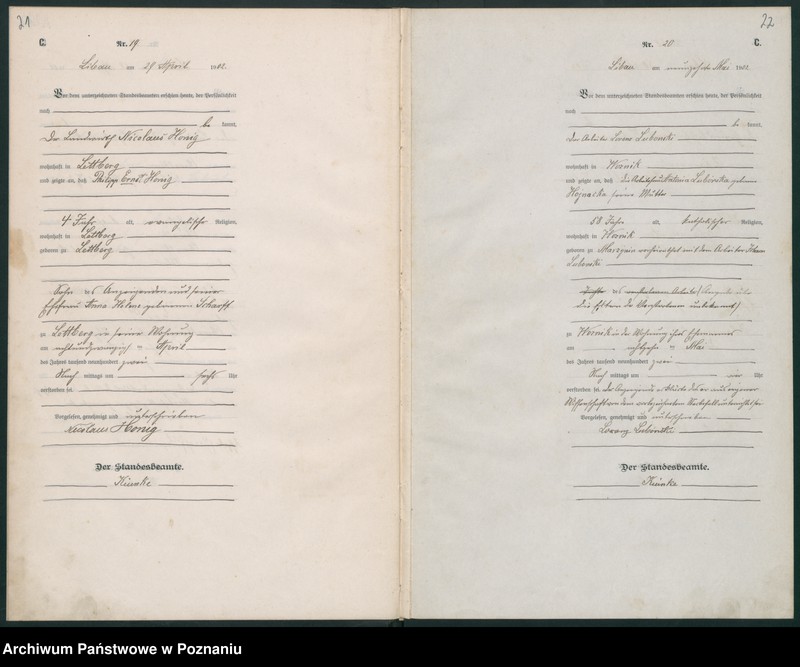 21
C.
Nr. 19
Libau am 29 April 1902.
Vor dem unterzeichneten Standesbeamten erschien heute, der Persönlichkeit
nach
be kannt,
Der Landwirth Nicolaus Honig
wohnhaft in Lettberg
und zeigte an, daß Philipp Ernst Honig
4 Jahr alt, evangelischer Religion,
wohnhaft in Lettberg
geboren zu Lettberg
Sohn des Anzeigenden und seiner
Ehefrau Anna Helene geborenen Scharff
zu Lettberg in seiner Wohnung
am achtundzwanzigsten April
des Jahres tausend neunhundert zwei
Nach mittags um Uhr
verstorben sei.
Vorgelesen, genehmigt und unterschrieben
Nicolaus Honig
Der Standesbeamte.
Künke
22
C.
Nr. 20
Libau am neunzehnten Mai 1902.
Vor dem unterzeichneten Standesbeamten erschien heute, der Persönlichkeit
nach
be kannt,
Der Arbeiter Lorenz Lubenski
wohnhaft in Wornik
und zeigte an, daß die Katharina Lubenska geborene
seine Mutter
58 Jahre alt, katholischer Religion,
wohnhaft in Wornik
geboren zu verheirathet mit dem Arbeiter
Lubenski
Tochter des verstorbenen Arbeiter
die Eltern der Verstorbenen unbekannt)
zu Wornik in der Wohnung ihres Ehemannes
am achtzehnten Mai
des Jahres tausend neunhundert zwei
Nach mittags um vier Uhr
verstorben sei. Der Anzeigende erklärte daß er aus eigener
Wissenschaft von dem Sterbefall unterrichtet sei
Vorgelesen, genehmigt und unterschrieben
Lorenz Lubinski
Der Standesbeamte.
Künke
Archiwum Państwowe w Poznaniu